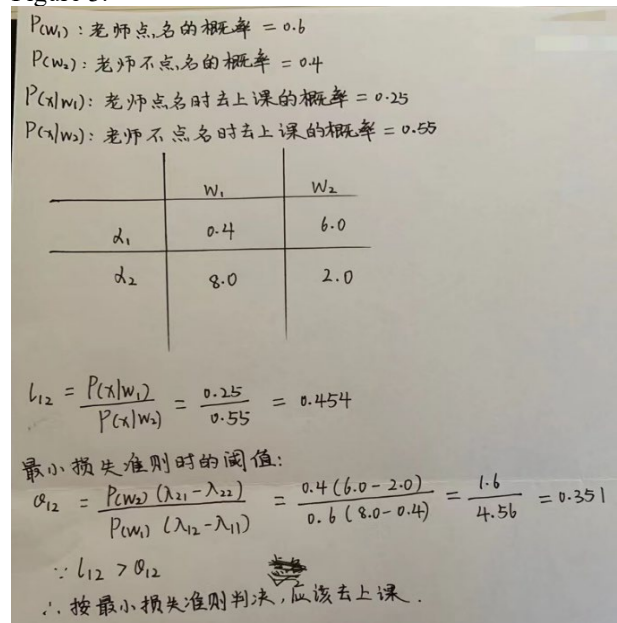 P(w₁): 老师点名的概率 = 0.6
P(w₂): 老师不点名的概率 = 0.4
P(x|w₁): 老师点名时去上课的概率 = 0.25
P(x|w₂): 老师不点名时去上课的概率 = 0.55
W₁ W₂
α₁ 0.4 6.0
α₂ 8.0 2.0
l₁₂ = P(x|w₁) / P(x|w₂) = 0.25 / 0.55 = 0.454
最小损失准则时的阈值:
θ₁₂ = P(w₂) (λ₂₁ - λ₂₂) / P(w₁) (λ₁₂ - λ₁₁) = 0.4 (6.0 - 2.0) / 0.6 (8.0 - 0.4) = 1.6 / 4.56 = 0.351
∵ l₁₂ > θ₁₂
∴ 按最小损失准则判决, 应该去上课.